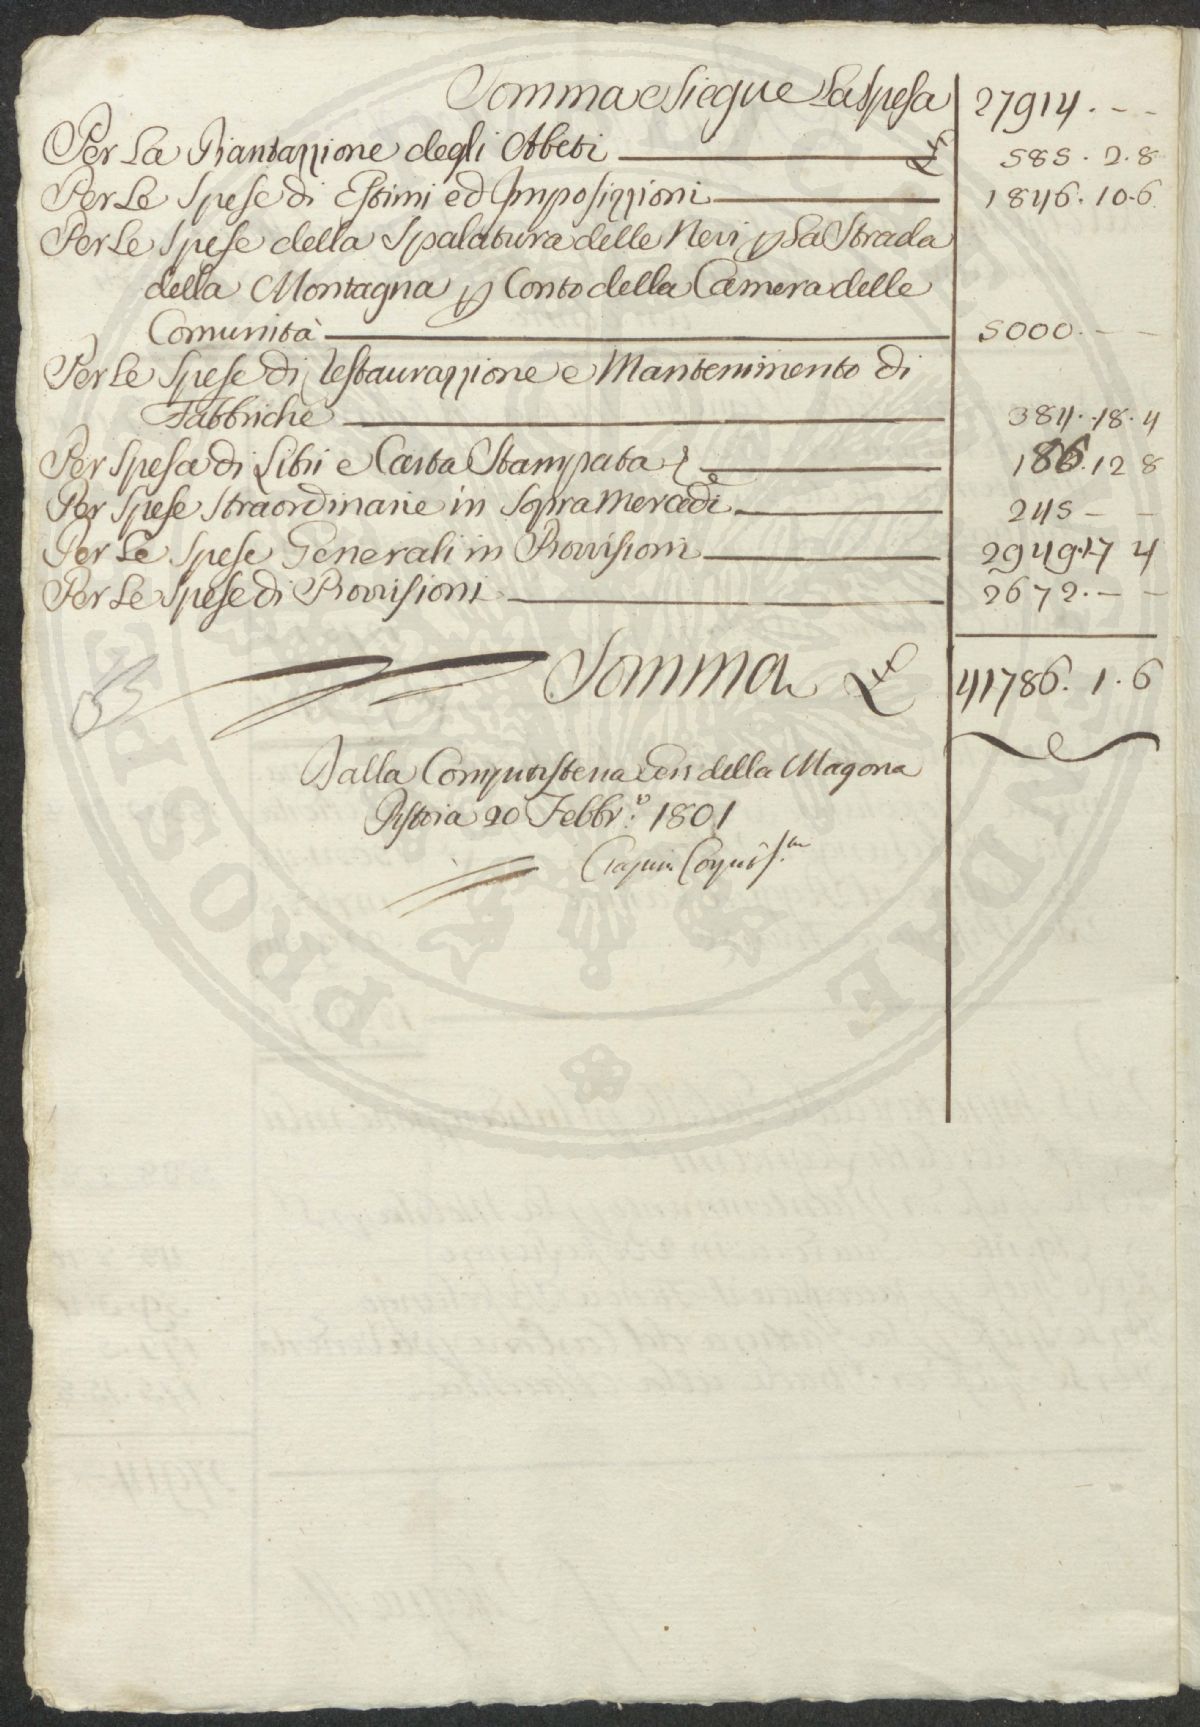 Somma e Siegue La Spesa 27914. - -
Per La Piantazzione degli Abeti 585. 2. 8
Per Le Spese di Estimi ed Imposizzioni 1846. 10. 6
Per Le Spese della Spalatura delle Nevi p La Strada
della Montagna p Conto della Camera delle
Comunità 5000. - -
Per Le Spese di Restaurazzione e Mantenimento di
Fabbriche 384. 18. 4
Per Spesa di Libri e Carta Stampata 186. 12 8
Per Spese Straordinarie in Sopra Mercedi 245 - -
Per Le Spese Generali in Provvisioni 2949. 17 4
Per Le Spese di Provvisioni 2672. - -
Somma 41786. 1. 6
Dalla Computisteria Gen della Magona
Pistoia 20 Febbr.º 1801